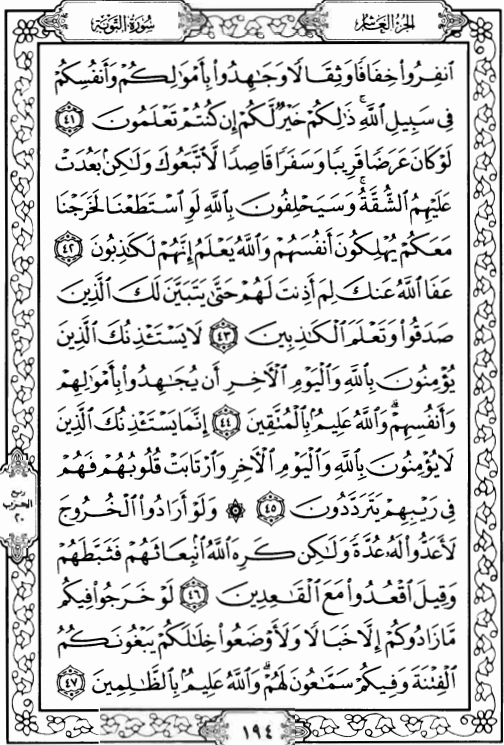 سُورَةُ التَّوْبَةِ
الجُزْءُ العَاشِرُ
ٱنفِرُوا۟ خِفَافًا وَثِقَالًا وَجَٰهِدُوا۟ بِأَمْوَٰلِكُمْ وَأَنفُسِكُمْ
فِى سَبِيلِ ٱللَّهِ ۚ ذَٰلِكُمْ خَيْرٌ لَّكُمْ إِن كُنتُمْ تَعْلَمُونَ ٤١
لَوْ كَانَ عَرَضًا قَرِيبًا وَسَفَرًا قَاصِدًا لَّٱتَّبَعُوكَ وَلَٰكِنۢ بَعُدَتْ
عَلَيْهِمُ ٱلشُّقَّةُ ۚ وَسَيَحْلِفُونَ بِٱللَّهِ لَوِ ٱسْتَطَعْنَا لَخَرَجْنَا
مَعَكُمْ يُهْلِكُونَ أَنفُسَهُمْ وَٱللَّهُ يَعْلَمُ إِنَّهُمْ لَكَٰذِبُونَ ٤٢
عَفَا ٱللَّهُ عَنكَ لِمَ أَذِنتَ لَهُمْ حَتَّىٰ يَتَبَيَّنَ لَكَ ٱلَّذِينَ
صَدَقُوا۟ وَتَعْلَمَ ٱلْكَٰذِبِينَ ٤٣ لَا يَسْتَـْٔذِنُكَ ٱلَّذِينَ
يُؤْمِنُونَ بِٱللَّهِ وَٱلْيَوْمِ ٱلْءَاخِرِ أَن يُجَٰهِدُوا۟ بِأَمْوَٰلِهِمْ
وَأَنفُسِهِمْ ۗ وَٱللَّهُ عَلِيمٌۢ بِٱلْمُتَّقِينَ ٤٤ إِنَّمَا يَسْتَـْٔذِنُكَ ٱلَّذِينَ
لَا يُؤْمِنُونَ بِٱللَّهِ وَٱلْيَوْمِ ٱلْءَاخِرِ وَٱرْتَابَتْ قُلُوبُهُمْ فَهُمْ
فِى رَيْبِهِمْ يَتَرَدَّدُونَ ٤٥ ۞ وَلَوْ أَرَادُوا۟ ٱلْخُرُوجَ
لَأَعَدُّوا۟ لَهُۥ عُدَّةً وَلَٰكِن كَرِهَ ٱللَّهُ ٱنۢبِعَاثَهُمْ فَثَبَّطَهُمْ
وَقِيلَ ٱقْعُدُوا۟ مَعَ ٱلْقَٰعِدِينَ ٤٦ لَوْ خَرَجُوا۟ فِيكُم
مَّا زَادُوكُمْ إِلَّا خَبَالًا وَلَأَوْضَعُوا۟ خِلَٰلَكُمْ يَبْغُونَكُمُ
ٱلْفِتْنَةَ وَفِيكُمْ سَمَّٰعُونَ لَهُمْ ۗ وَٱللَّهُ عَلِيمٌۢ بِٱلظَّٰلِمِينَ ٤٧
ربع
الحزب
٢٠
١٩٤